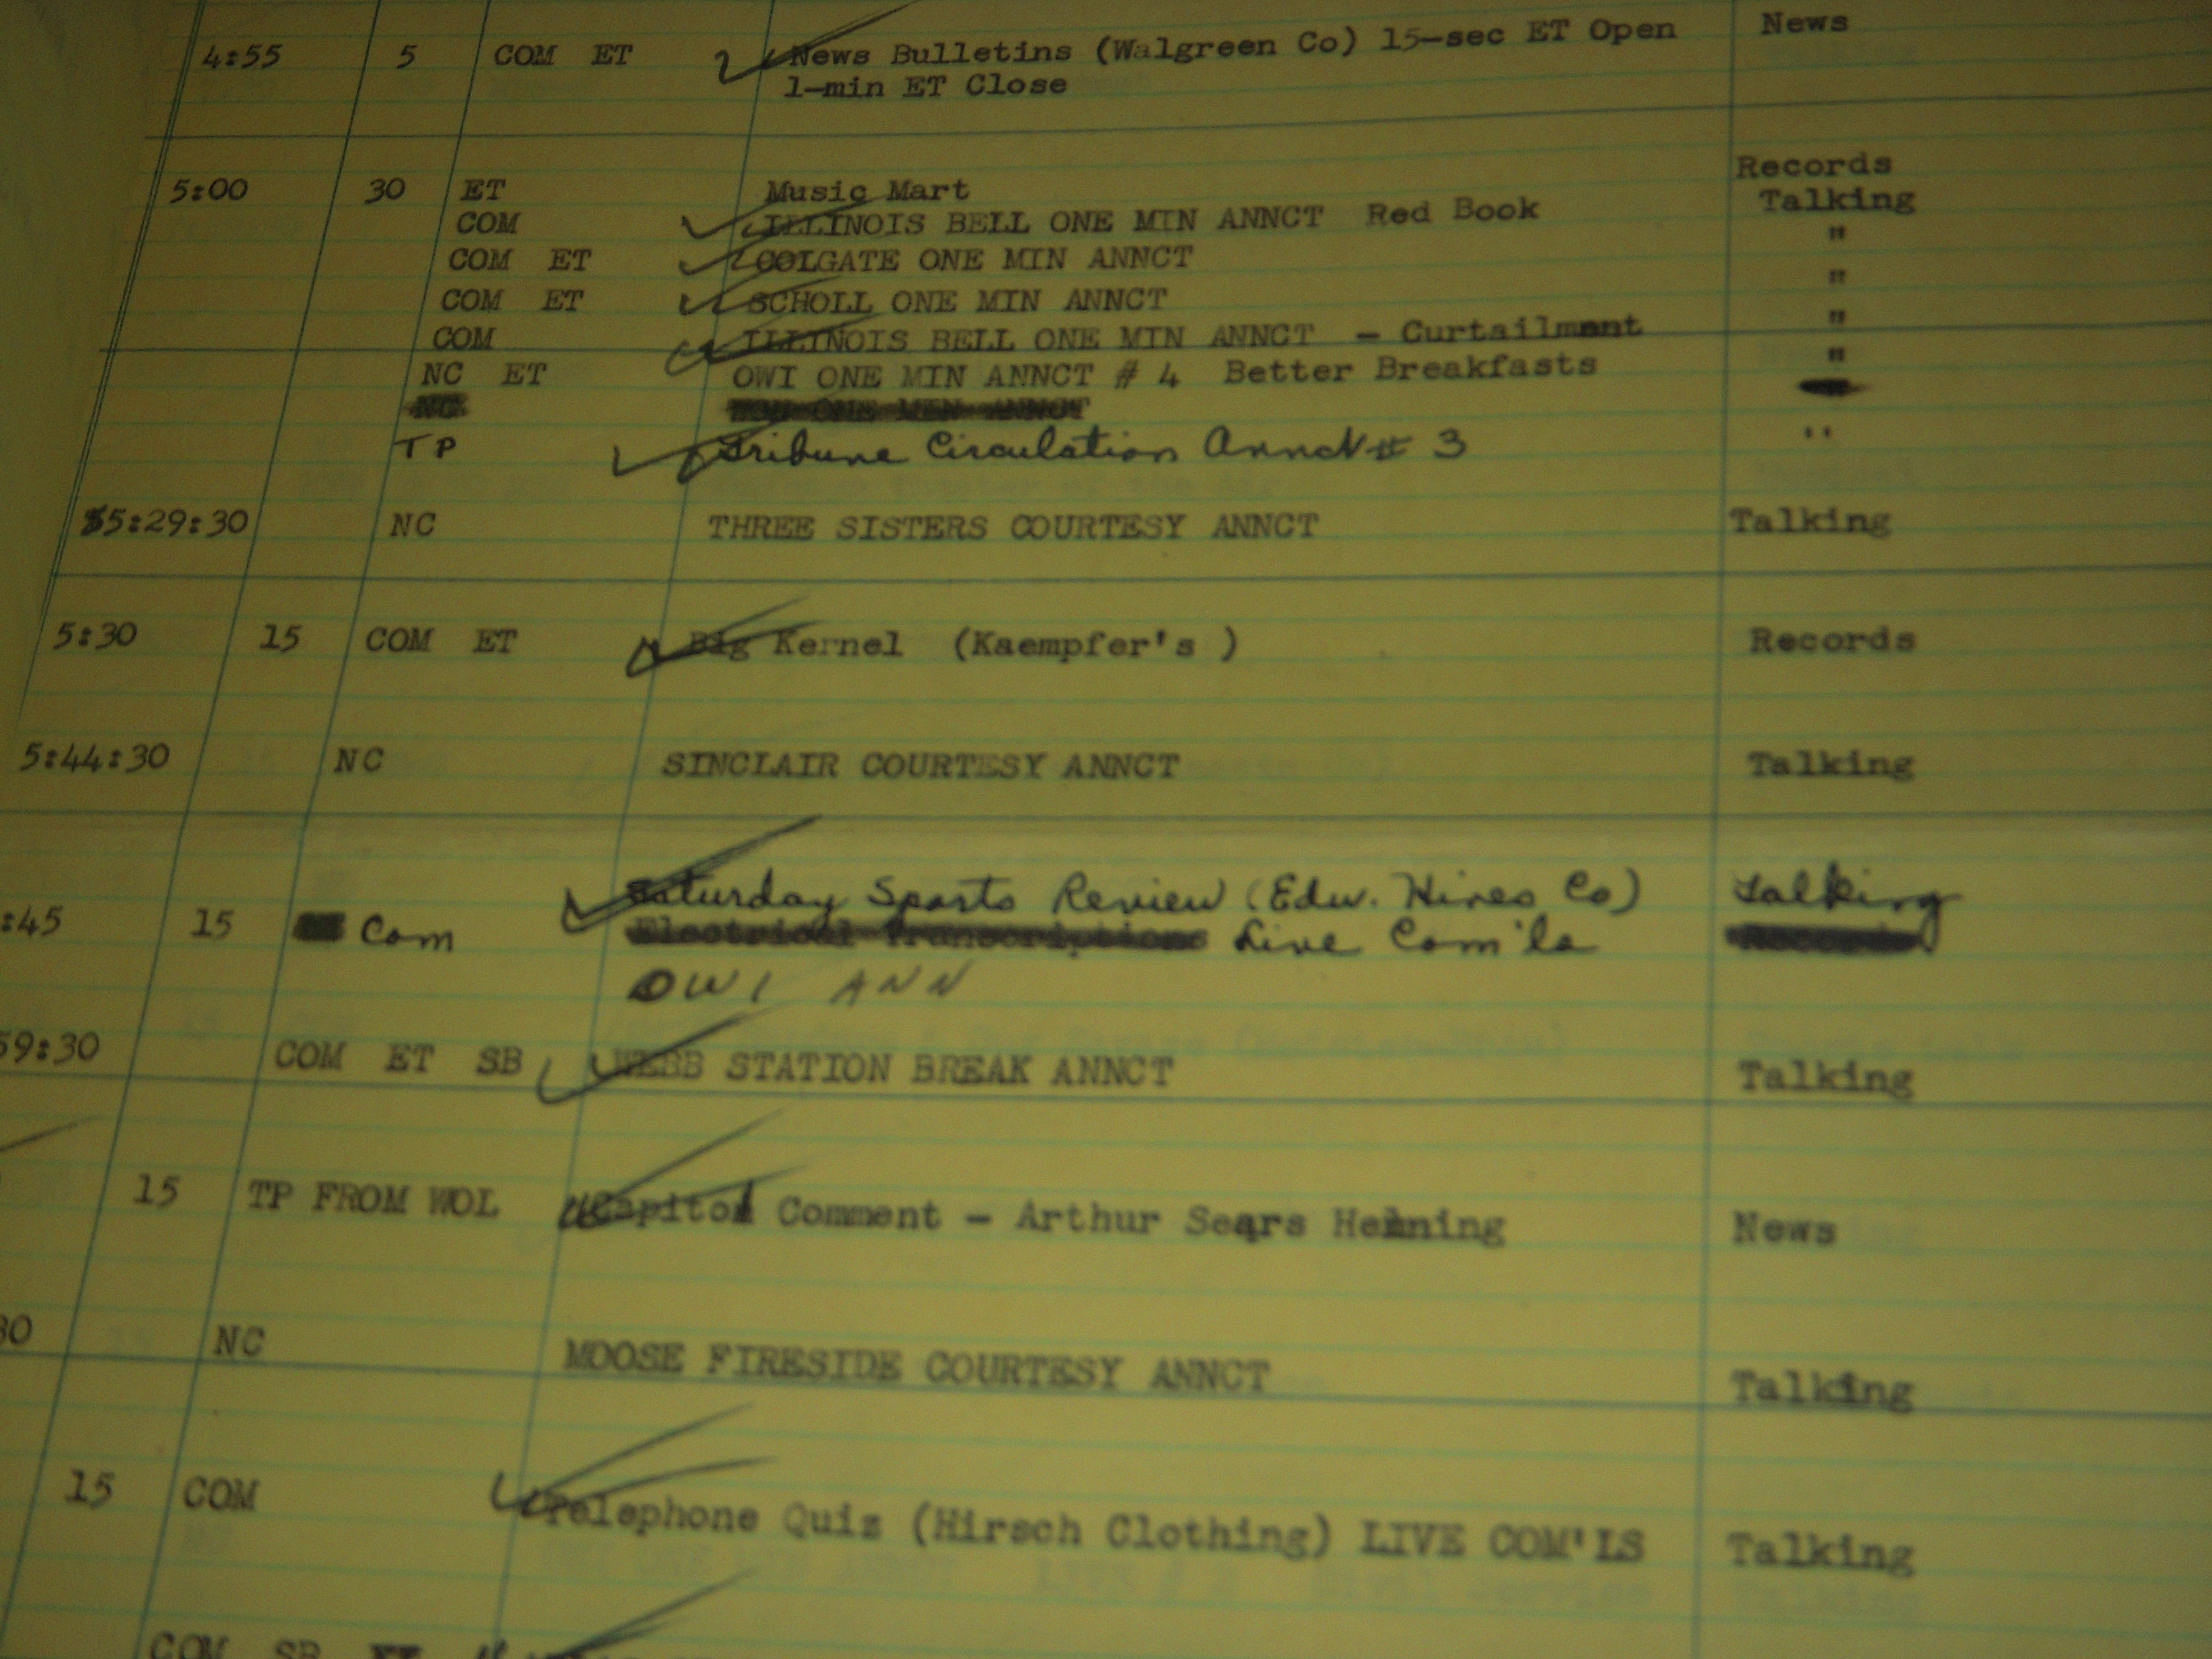 4:55 5 COM ET News Bulletins (Walgreen Co) 15-sec ET Open News
1-min ET Close
Records
5:00 30 ET Music Mart Talking
COM ILLINOIS BELL ONE MIN ANNCT Red Book "
COM ET COLGATE ONE MIN ANNCT "
COM ET SCHOLL ONE MIN ANNCT "
COM ILLINOIS BELL ONE MIN ANNCT - Curtailment "
NC ET OWI ONE MIN ANNCT # 4 Better Breakfasts
NC ONE MIN ANNCT
TP Tribune Circulation Annct # 3 "
5:29:30 NC THREE SISTERS COURTESY ANNCT Talking
5:30 15 COM ET Big Kernel (Kaempfer's ) Records
5:44:30 NC SINCLAIR COURTESY ANNCT Talking
Saturday Sports Review (Edw. Hires Co) Talking
:45 15 Com Electrical Transcriptions Live Com'ls Records
OWI ANN
59:30 COM ET SB WEBB STATION BREAK ANNCT Talking
15 TP FROM WOL Capitol Comment - Arthur Sears Henning News
30 NC MOOSE FIRESIDE COURTESY ANNCT Talking
15 COM Telephone Quiz (Hirsch Clothing) LIVE COM'LS Talking
COM SB